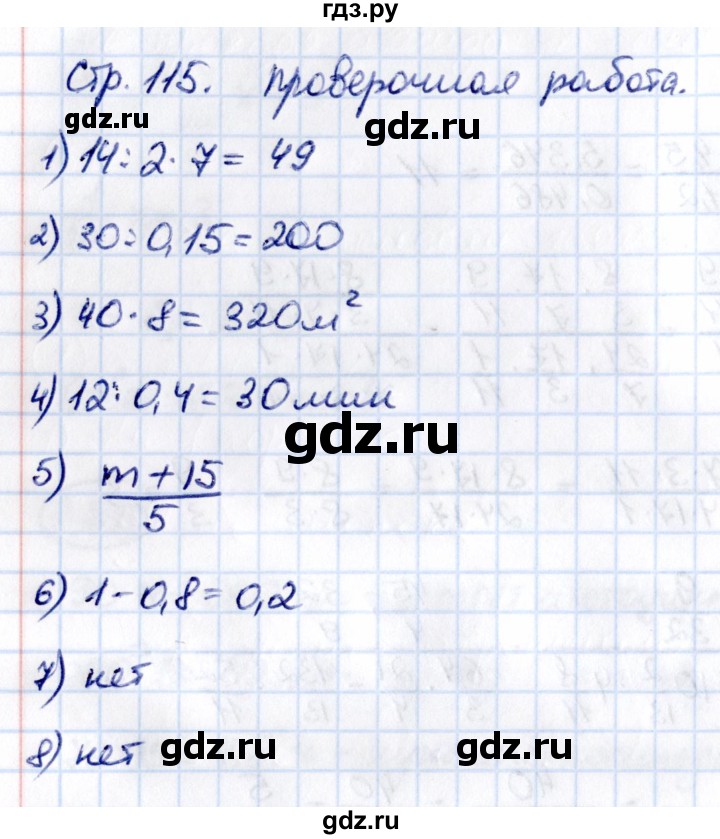 гдз.ру
Стр. 115. проверочная работа.
gdz.ru
gdz.ru
1) 14÷2·7= 49
2) 30÷0,15=200
3) 40·8= 320м²
4) 12÷0,4=30мин
gdz.ru
5) m+15
5
6) 1-0,8=0,2
7) нет
8) нет
gdz.ru
gdz.ru
gdz.ru
gdz.ru